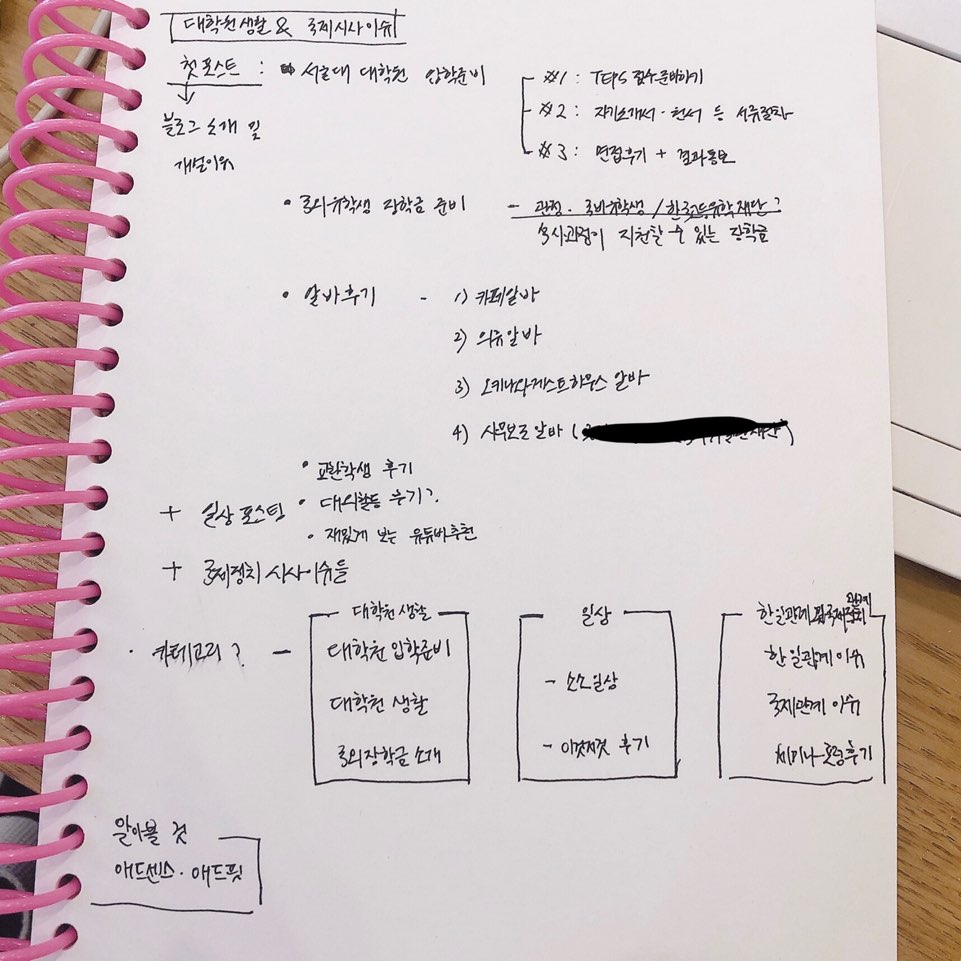 대학원생활 & 국제시사이슈
첫포스트 : 서울대 대학원 입학준비
#1 : TEPS 점수준비하기
#2 : 자기소개서·헌서 등 서류절차
#3 : 면접후기 + 결과통보
블로그 소개 및
개설이유
• 국외유학생 장학금 준비 - 관정. 국비유학생 / 한국고등유학재단?
지원할 수 있는 장학금
• 알바후기 - 1) 카페알바
2) 의류알바
3) 오키나와게스트하우스 알바
4) 사무보조알바 (
• 교환학생 후기
+ 일상포스팅 • 대외활동 후기?
• 재밌게 보는 유튜버추천
+ 국제정치 시사이슈들
• 카테고리? -
대학원생활
대학원입학준비
대학원 생활
국외장학금 소개
일상
- 소소일상
- 이것저것 후기
한일관계
한일관계이슈
국제관계 이슈
세미나·포럼후기
알아볼 것
애드센스·애드핏